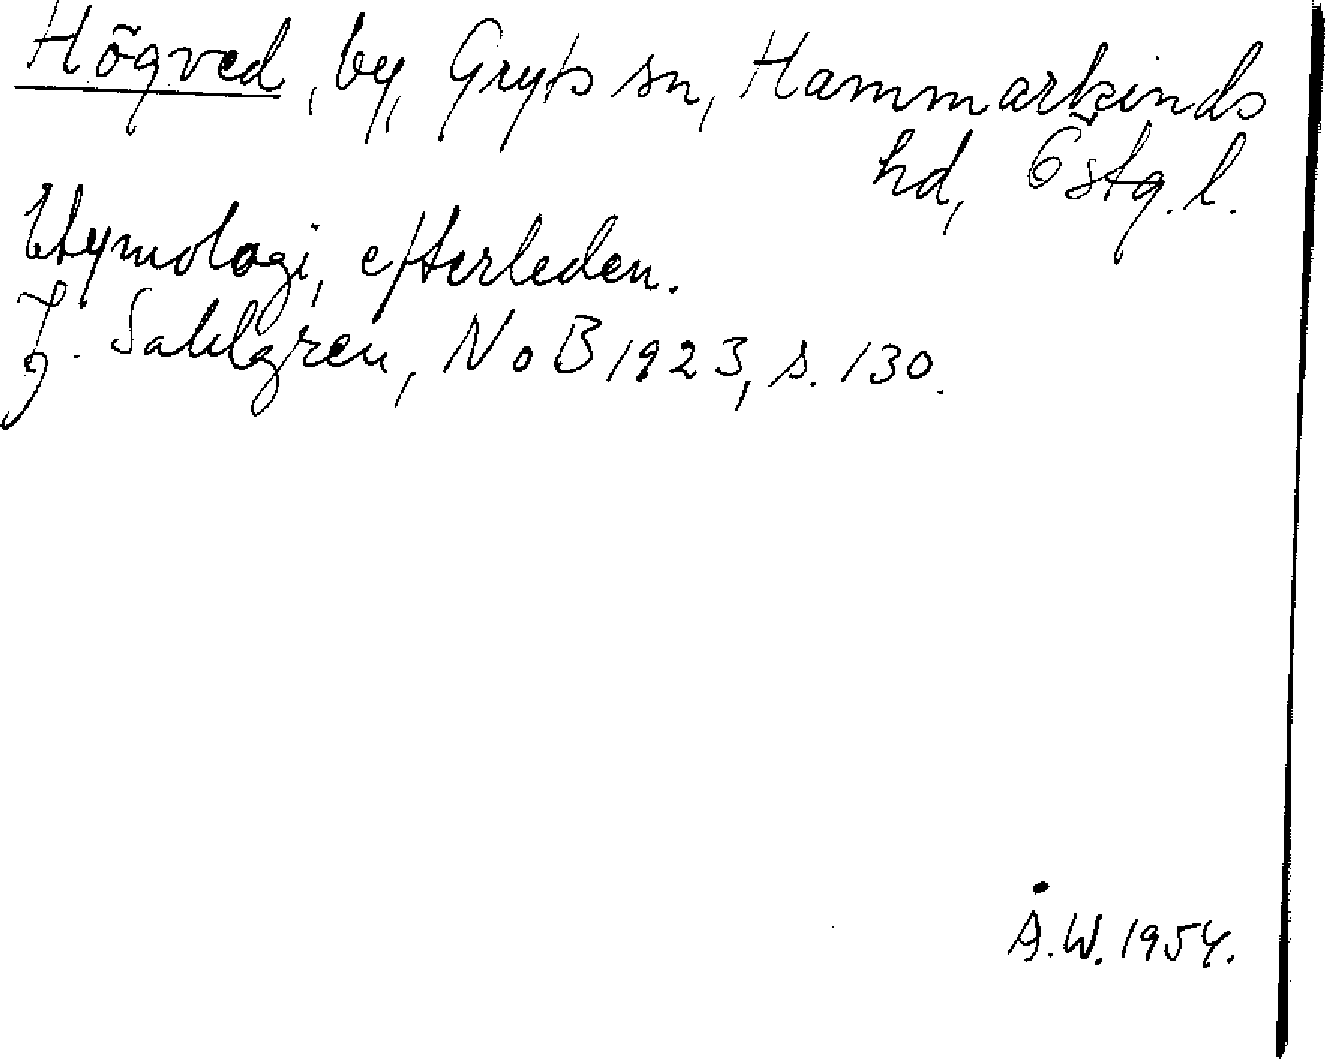 Högved, by, Gryts sn, Hammarkinds
hd, Östg.l.
Etymologi, efterleden.
J. Sahlgren, NoB 1923, s. 130.
Å.W. 1954.